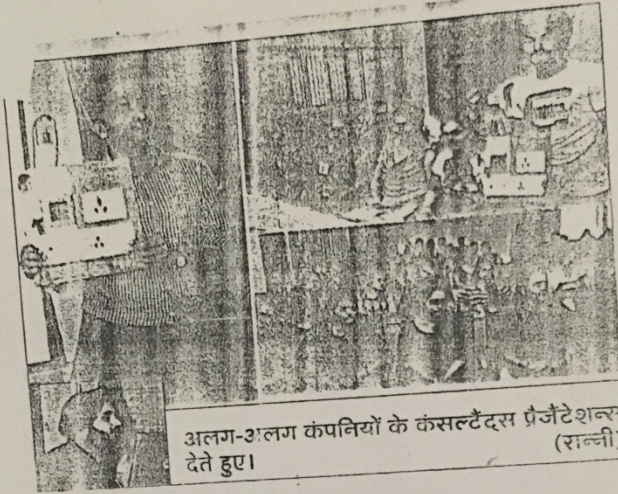 अलग-अलग कंपनियों के कंसल्टैंट्स प्रैजैंटेशन्स
देते हुए। (रान्नी)